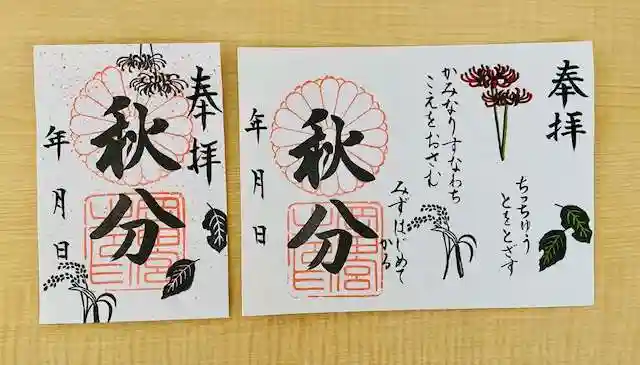 奉拝
秋分
年 月 日
奉拝
ちっちゅう
とをとざす
かみなりすなわち
こえをおさむ
みずはじめて
かる
秋分
年 月 日